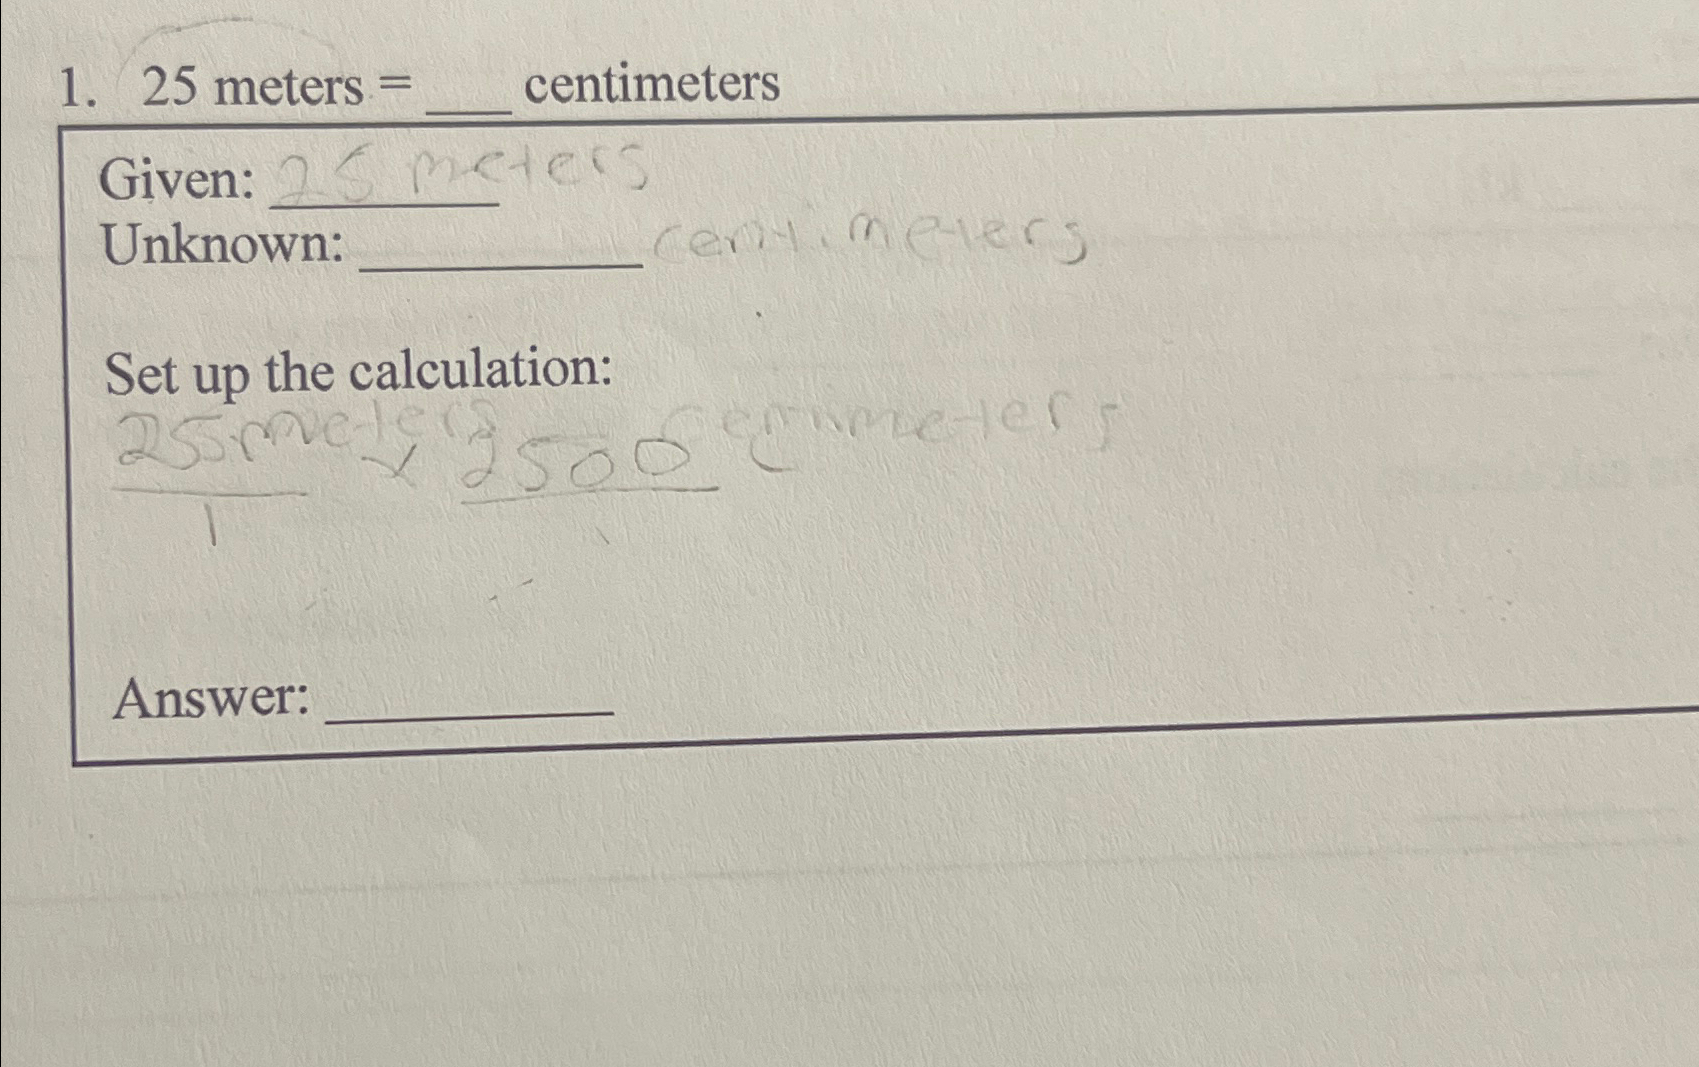 1. 25 meters = ___ centimeters
Given: 25 meters
Unknown: ___ centimeters
Set up the calculation:
25 meters x 2500 centimeters
1
Answer: ___